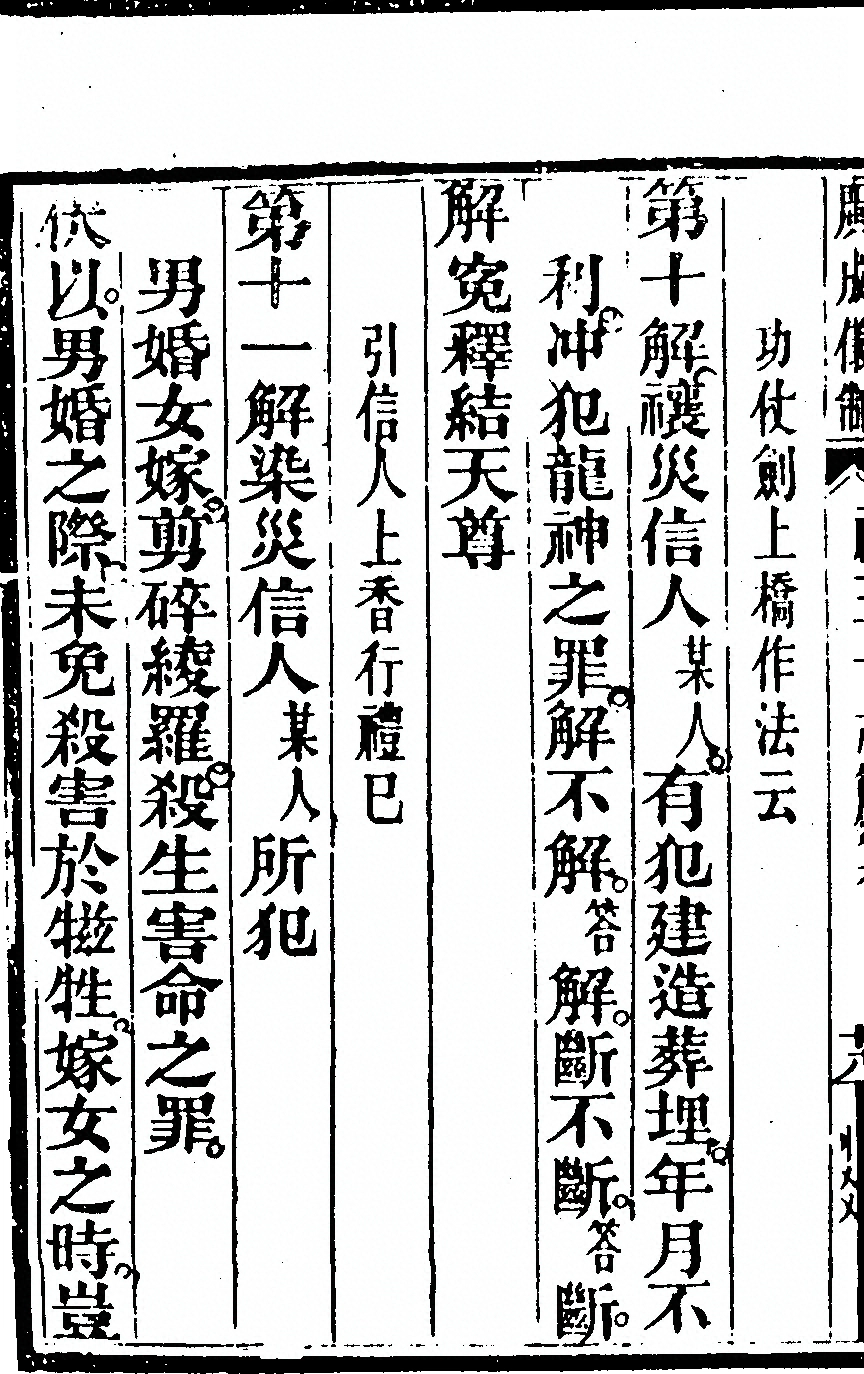 功仗劍上橋作法云
第十解禳災信人某人有犯建造葬埋年月不
利冲犯龍神之罪解不解答解斷不斷答斷
解寃釋結天尊
引信人上香行禮巳
第十一解染災信人某人所犯
男婚女嫁剪碎綾羅殺生害命之罪
伏以男婚之際未免殺害於牲牲嫁女之時豈